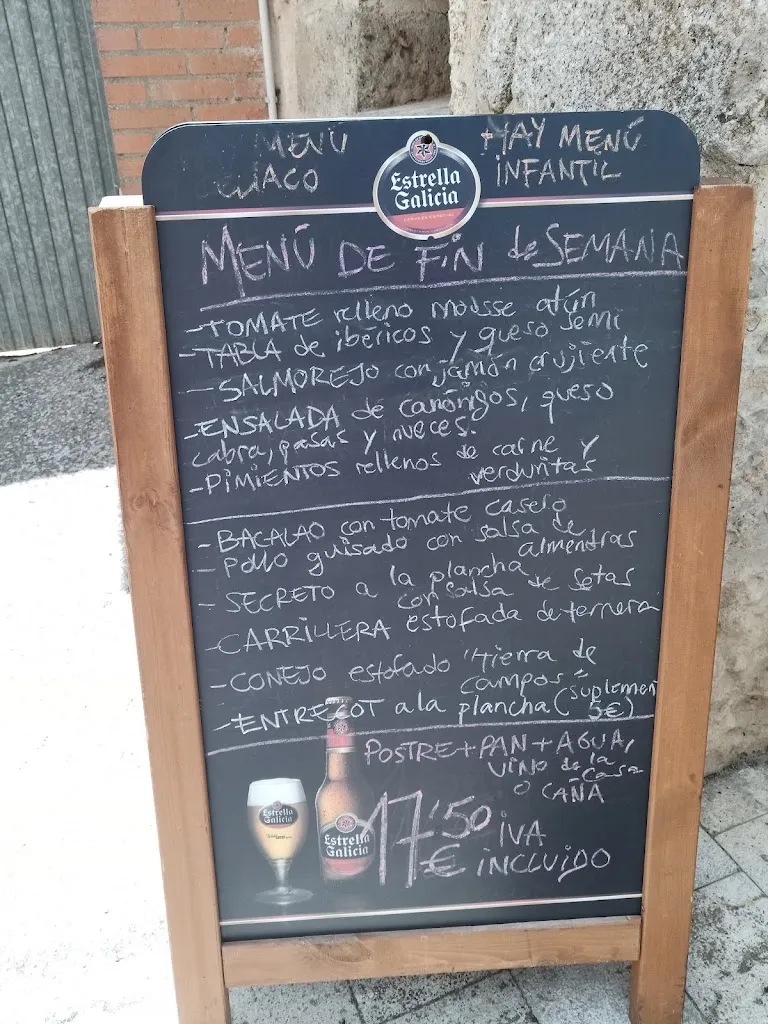 MENÚ
HAY MENÚ
INFANTIL
Estrella
Galicia
MENÚ DE FIN de SEMANA
-TOMATE relleno mousse atún
-TABLA de ibéricos y queso semi
-SALMOREJO con jamón crujiente
-ENSALADA de canónigos, queso
cabra, pasas y nueces.
-PIMIENTOS rellenos de carne y
verduritas
-BACALAO con tomate casero
-POLLO guisado con salsa de
almendras
-SECRETO a la plancha
con salsa de setas
-CARRILLERA estofada de ternera
-CONEJO estofado "tierra de
campos"
-ENTRECOT a la plancha (suplemen
5€)
POSTRE+PAN+AGUA,
VINO de la
casa
O CAÑA
17'50
€ IVA
INCLUIDO
Estrella
Galicia
Estrella
Galicia